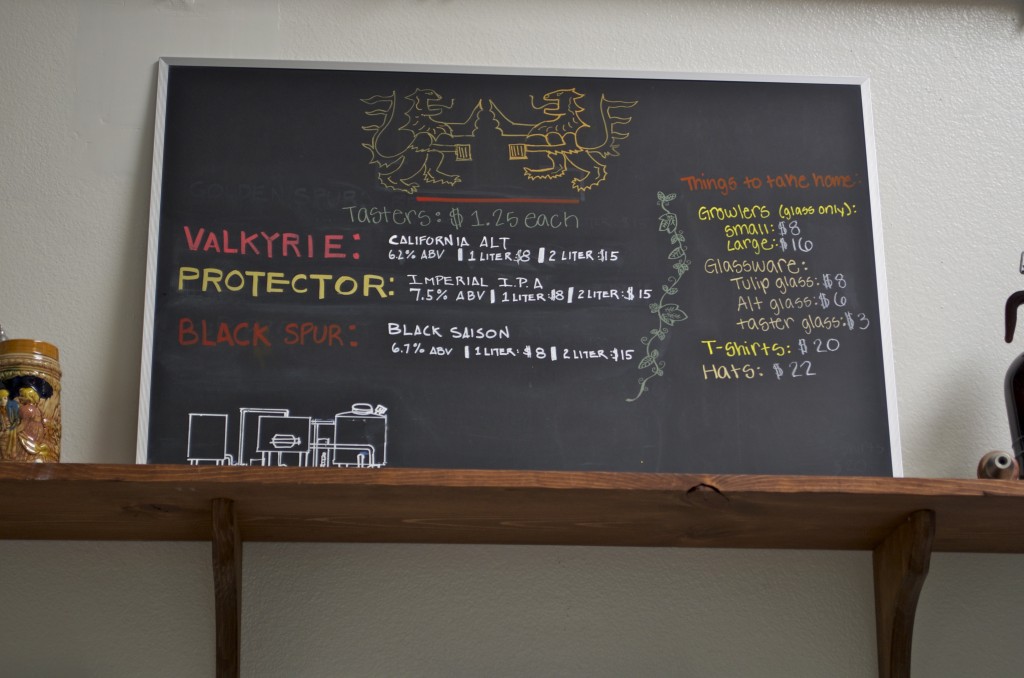 Tasters: $ 1.25 each
VALKYRIE: CALIFORNIA ALT
6.2% ABV | 1 LITER $8 | 2 LITER: $15
PROTECTOR: IMPERIAL I.P.A
7.5% ABV | 1 LITER $8 | 2 LITER: $ 15
BLACK SPUR: BLACK SAISON
6.7% ABV | 1 LITER: $ 8 | 2 LITER: $15
Things to take home:
Growlers (glass only):
Small: $8
Large: $16
Glassware:
Tulip glass: $8
Alt glass: $6
taster glass: $3
T-Shirts: $ 20
Hats: $ 22